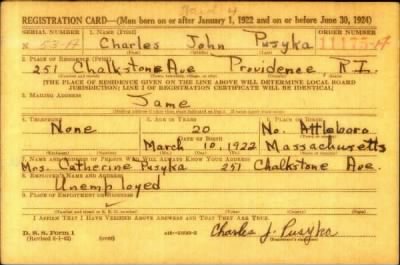 REGISTRATION CARD—(Men born on or after January 1, 1922 and on or before June 30, 1924)
SERIAL NUMBER 1. NAME (Print) ORDER NUMBER
N 53-A Charles John Pusyka 11175-A
(First) (Middle) (Last)
2. PLACE OF RESIDENCE (Print)
251 Chalkstone Ave Providence R.I.
(THE PLACE OF RESIDENCE GIVEN ON THE LINE ABOVE WILL DETERMINE LOCAL BOARD
JURISDICTION; LINE 2 OF REGISTRATION CERTIFICATE WILL BE IDENTICAL)
3. MAILING ADDRESS
Same
4. TELEPHONE 5. AGE IN YEARS 6. PLACE OF BIRTH
None 20 No. Attleboro
DATE OF BIRTH
March 10, 1922 Massachusetts
7. NAME AND ADDRESS OF PERSON WHO WILL ALWAYS KNOW YOUR ADDRESS
Mrs. Catherine Pusyka 251 Chalkstone Ave.
8. EMPLOYER'S NAME AND ADDRESS
Unemployed
9. PLACE OF EMPLOYMENT OR BUSINESS
I AFFIRM THAT I HAVE VERIFIED ABOVE ANSWERS AND THAT THEY ARE TRUE.
D. S. S. Form 1
Charles J. Pusyka